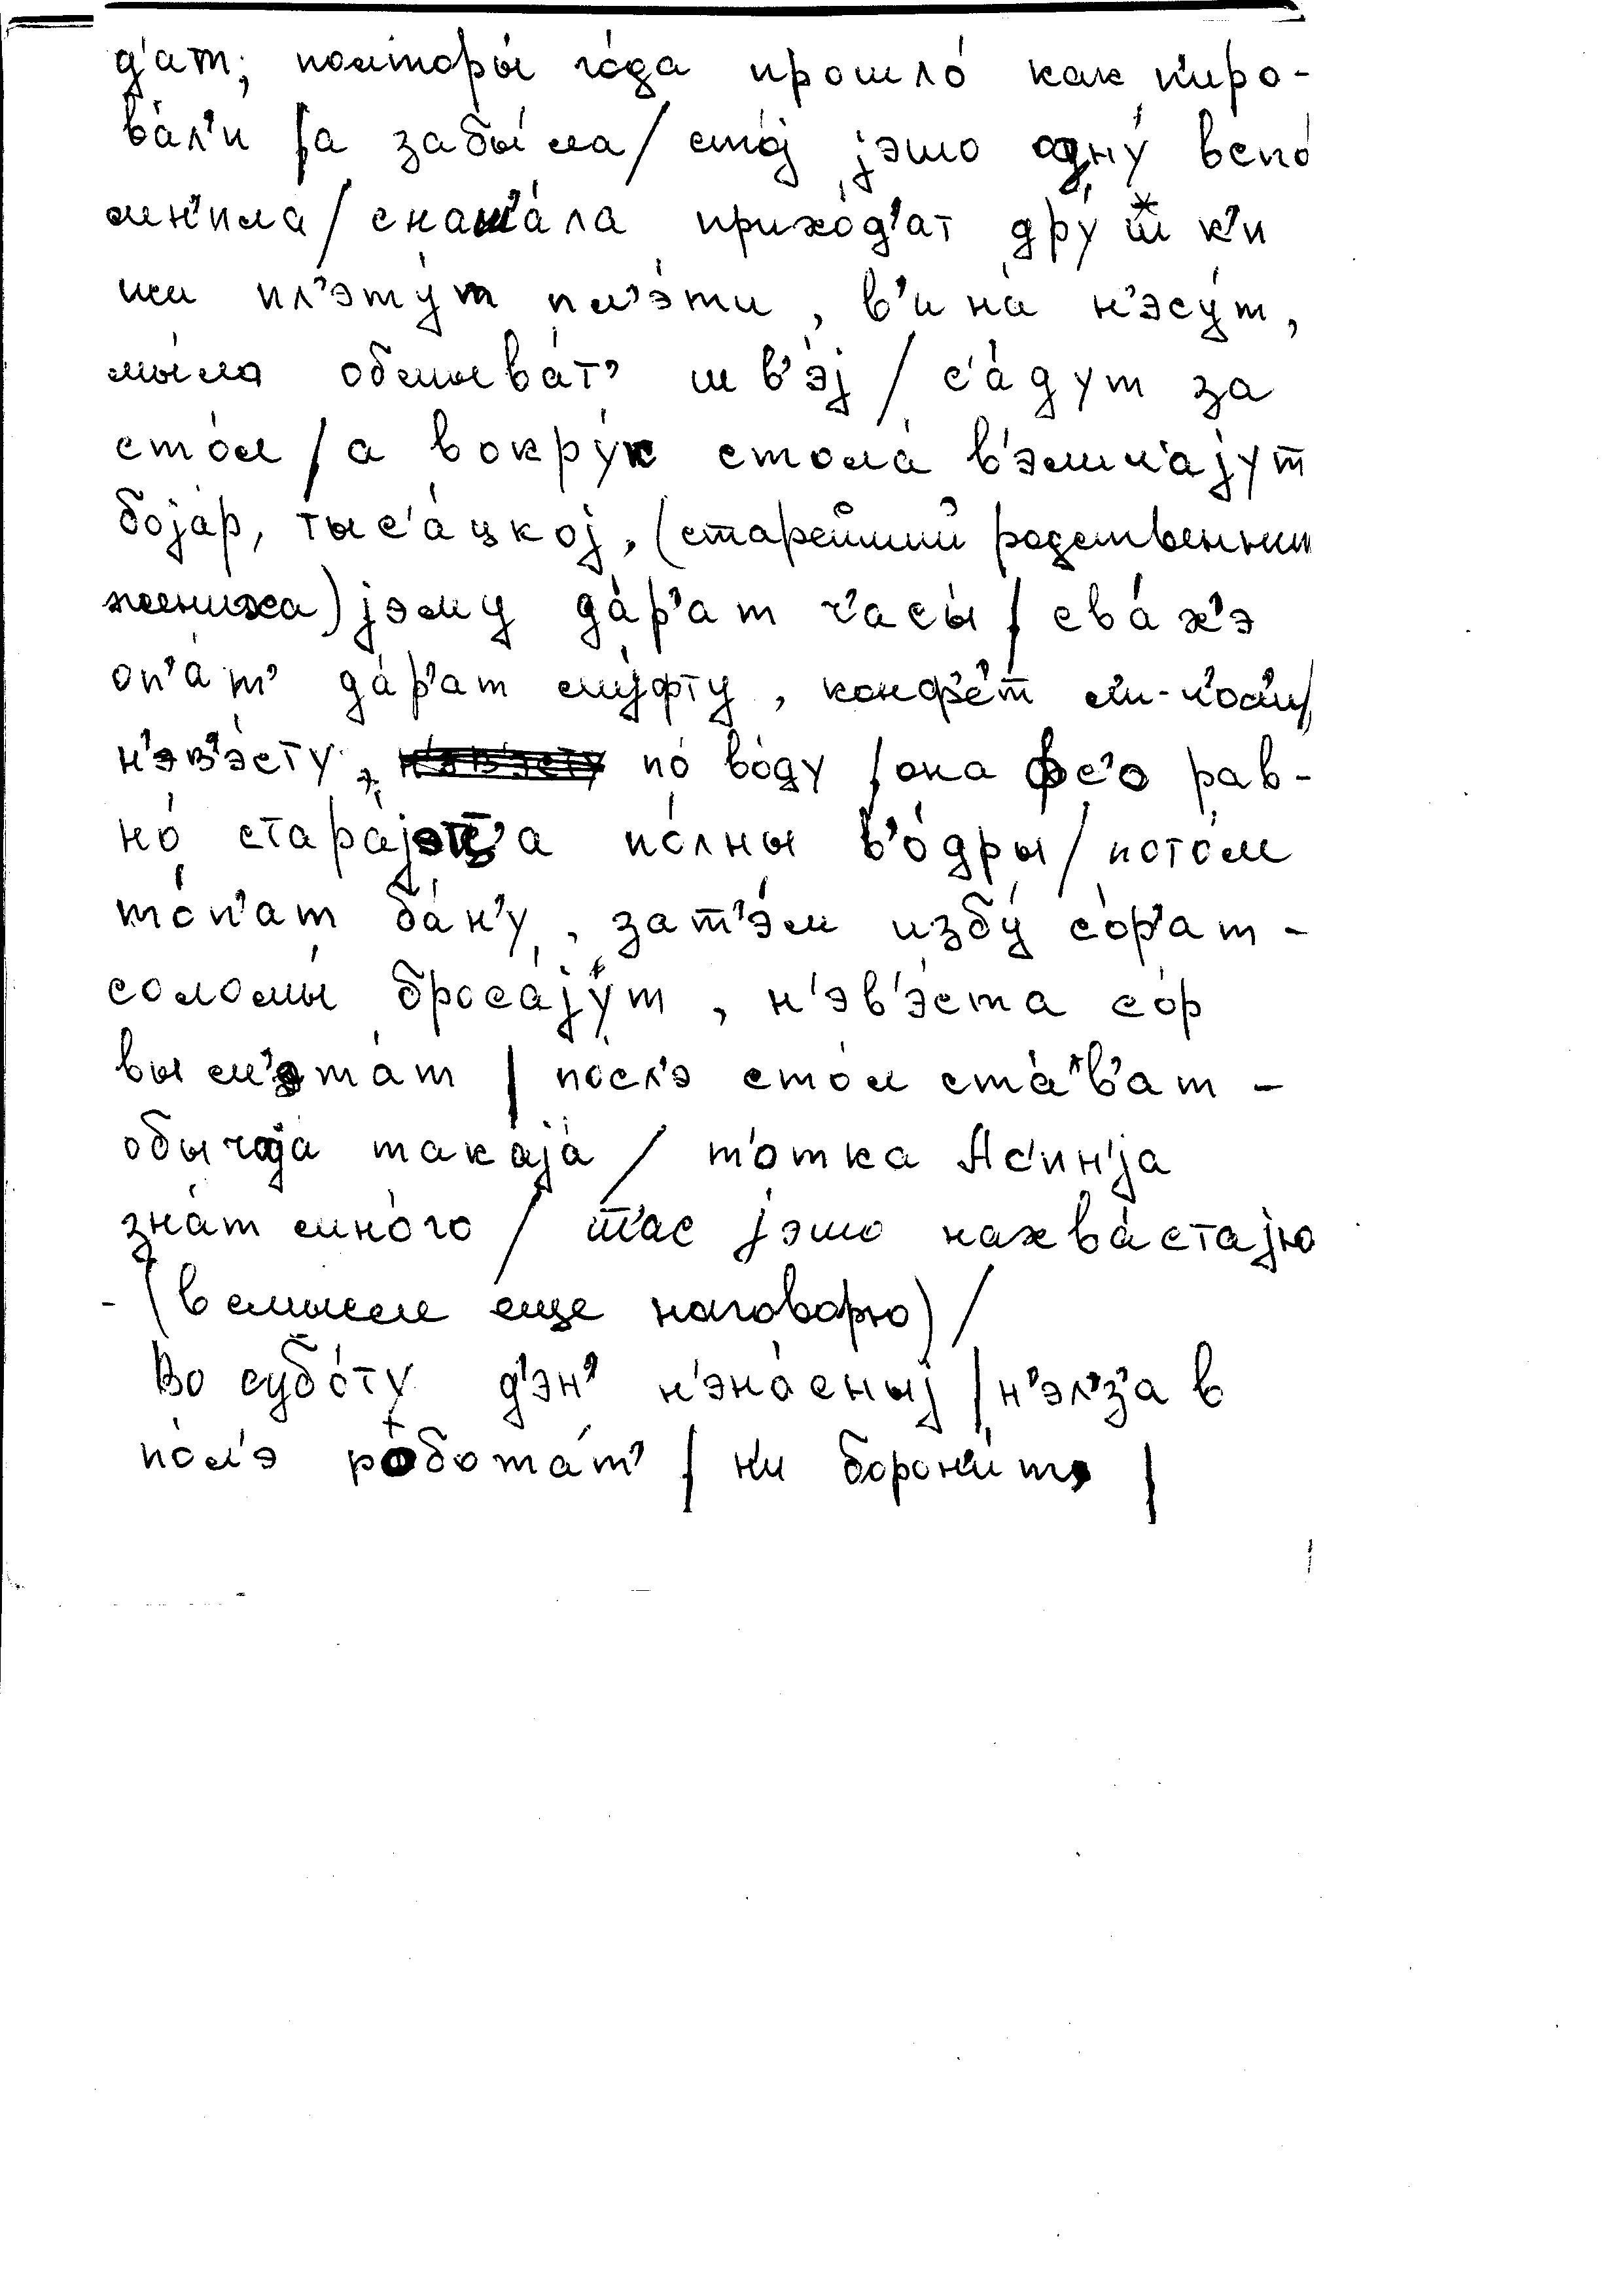 д'ат; полторы́ го́да прошло́ как п'иро-
ва́л'и / а забы́ла / сто́j jэшо одну́ вспо́
мн'ила / снач'а́ла прихо́д'ат дру́шк'и
пл'эту́т пл'э́ти, в'ина́ н'эсу́т,
мы́ла обмыва́т' шв'э́j / с'а́дут за
сто́л / а вокру́к стола́ в'элич'а́jут
боjа́р, тыс'а́цкоj, (старейший родственник
жениха) jэму да́р'ат ч'асы́ / сва́х'э
оп'а́т' да́р'ат му́фту, конф'э́т
н'эв'э́сту, по́ воду / она фс'о рав-
но́ стара́jэтц'а по́лны в'о́дры / пото́м
то́п'ат ба́н'у, зат'э́м избу́ со́р'ат -
соломы́ броса́jут, н'эв'э́ста со́р
вым'эта́т / по́сл'э сто́л ста́в'ат -
обычаjа такаjа́ / т'о́тка Ас'ин'jа
зна́т мно́го / jэшо нахва́стаjю
- (в смысле еще наговорю) /
Во субо́ту д'эн' н'эна́сныj / н'эл'з'а в
по́л'э робота́т' / н'и борон'и́т' /